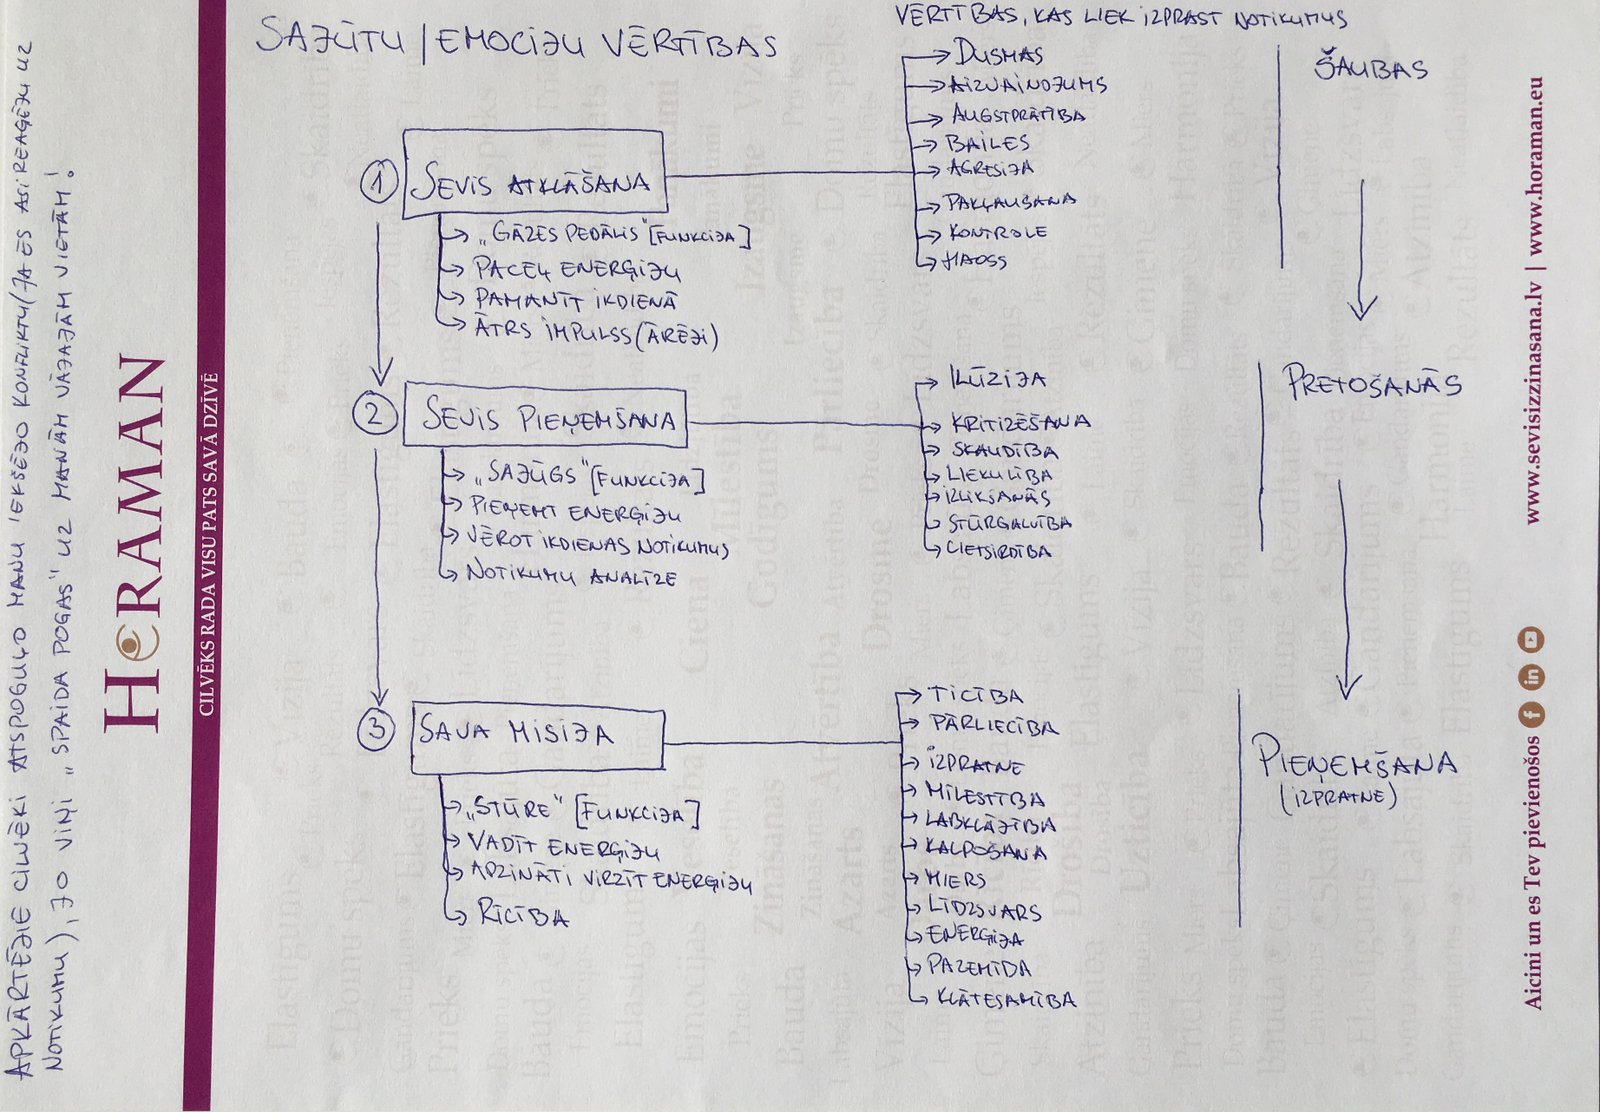 SAJŪTU / EMOCIJU VĒRTĪBAS
VĒRTĪBAS, KAS LIEK IZPRAST NOTIKUMUS
① SEVIS ATKLĀŠANA
"GĀZES PEDĀLIS" [FUNKCIJA]
PACEĻ ENERĢIJU
PAMANĪT IKDIENĀ
ĀTRS IMPULSS (ĀRĒJI)
DUSMAS
AIZVAINOJUMS
AUGSTPRĀTĪBA
BAILES
AGRESIJA
PAKĻAUŠANA
KONTROLE
HAOSS
ŠAUBAS
② SEVIS PIEŅEMŠANA
"SAJŪGS" [FUNKCIJA]
PIEŅEMT ENERĢIJU
VĒROT IKDIENAS NOTIKUMUS
NOTIKUMU ANALĪZE
ILŪZIJA
KRITIZĒŠANA
SKAUDĪBA
LIEKULĪBA
IZLIKŠANĀS
STŪRGALVĪBA
CIETSIRDĪBA
PRETOŠANĀS
③ SAVA MISIJA
"STŪRE" [FUNKCIJA]
VADĪT ENERĢIJU
APZINĀTI VIRZĪT ENERĢIJU
RĪCĪBA
TICĪBA
PĀRLIECĪBA
IZPRATNE
MĪLESTĪBA
LABKLĀJĪBA
KALPOŠANA
MIERS
LĪDZSVARS
ENERĢIJA
PAZEMĪBA
KLĀTESAMĪBA
PIEŅEMŠANA
(IZPRATNE)
APKĀRTĒJIE CILVĒKI ATSPOGUĻO MANU IEKŠĒJO KONFLIKTU (JA ES ASI REAĢĒJU UZ
NOTIKUMU), JO VIŅI "SPAIDA POGAS" UZ MANĀM VĀJAJĀM VIETĀM!
HORAMAN
CILVĒKS RADA VISU PATS SAVĀ DZĪVĒ
Aicini un es Tev pievienošos www.sevisizzinasana.lv | www.horaman.eu